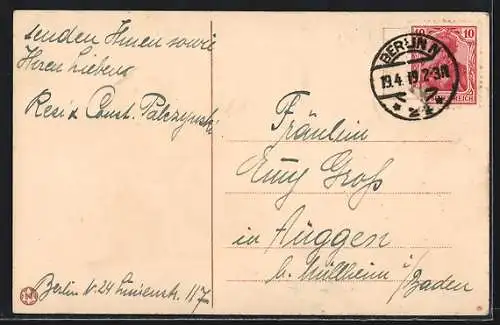 senden Ihnen sowie
Ihren Lieben
Resi & Const. Palczynski
Berlin N. 24 Linienstr. 117
Fräulein
Emy Groß
in Auggen
b. Müllheim i/
Baden
BERLIN N
19.4.19.2-3N
* 24 *
10 10
REICH